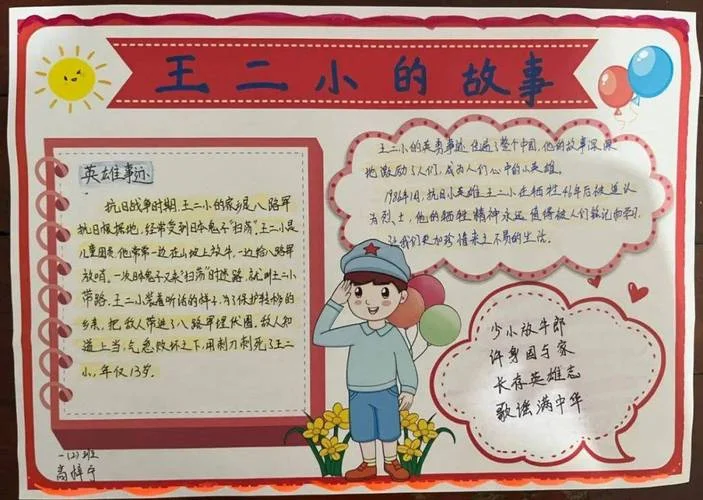 王二小的故事
英雄事迹
抗日战争时期,王二小的家乡是八路军
抗日根据地,经常受到日本鬼子"扫荡",王二小是
儿童团员,他常常一边在山坡上放牛,一边给八路军
放哨。一次日本鬼子又来"扫荡"时迷路,就叫王二小
带路。王二小装着听话的样子,为了保护转移的
乡亲,把敌人带进了八路军埋伏圈。敌人知
道上当,气急败坏之下,用刺刀刺死了王二
小,年仅13岁。
王二小的英勇事迹传遍了整个中国,他的故事深深
地激励了人们,成为人们心中的小英雄。
抗日小英雄王二小在牺牲46年后被追认
为烈士,他的牺牲精神永远值得被人们铭记和学习,
让我们更加珍惜来之不易的生活。
少小放牛郎
许身国与家
长存英雄志
歌谣满中华
一(2)班
高梓宁